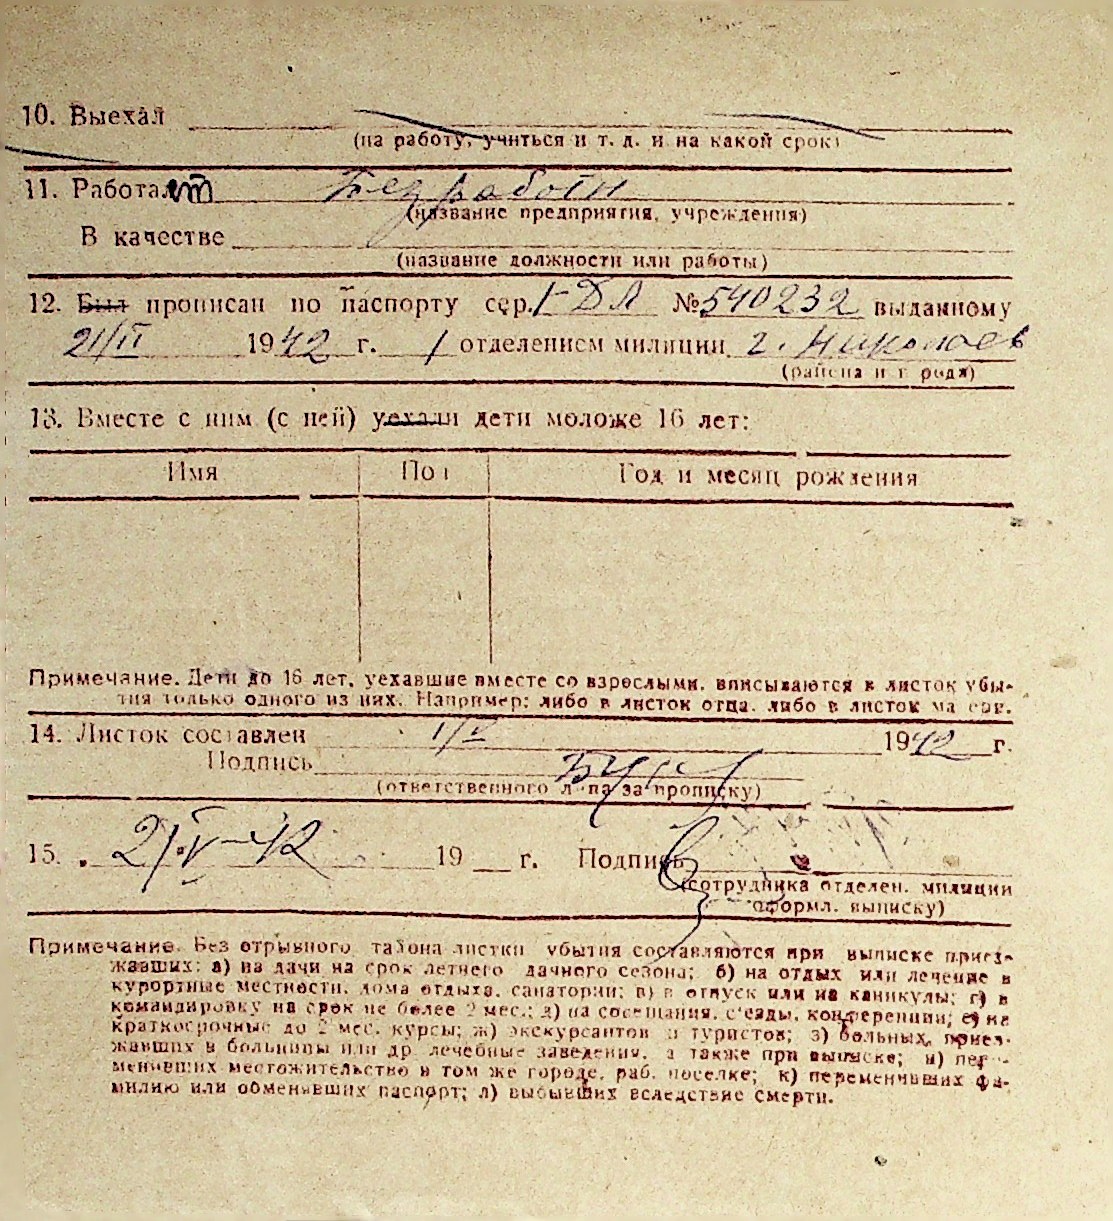 10. Выехал
(на работу, учиться и т. д. и на какой срок)
11. Работает Без работы
(название предприятия, учреждения)
В качестве
(название должности или работы)
12. Был прописан по паспорту сер. І-ДЛ № 540232 выданному
21/II 1942 г. 1 отделением милиции г. Николаев
(района и города)
13. Вместе с ним (с ней) уехали дети моложе 16 лет:
Имя Пол Год и месяц рождения
Примечание. Дети до 16 лет, уехавшие вместе со взрослыми, вписываются в листок убы-
тия только одного из них. Например: либо в листок отца, либо в листок матери.
14. Листок составлен 1/V 1942 г.
Подпись
(ответственного лица за прописку)
15. 21.V-42 19 г. Подпись
(сотрудника отделен. милиции
оформл. выписку)
Примечание. Без отрывного талона листки убытия составляются при выписке приез-
жавших: а) на дачи на срок летнего дачного сезона; б) на отдых или лечение в
курортные местности, дома отдыха, санатории; в) в отпуск или на каникулы; г) в
командировку на срок не более 2 мес.; д) на совещания, с'езды, конференции; е) на
краткосрочные до 2 мес. курсы; ж) экскурсантов и туристов; з) больных, приез-
жавших в больницы или др. лечебные заведения, а также при выписке; и) пере-
менивших местожительство в том же городе, раб. поселке; к) переменивших фа-
милию или обменявших паспорт; л) выбывших вследствие смерти.